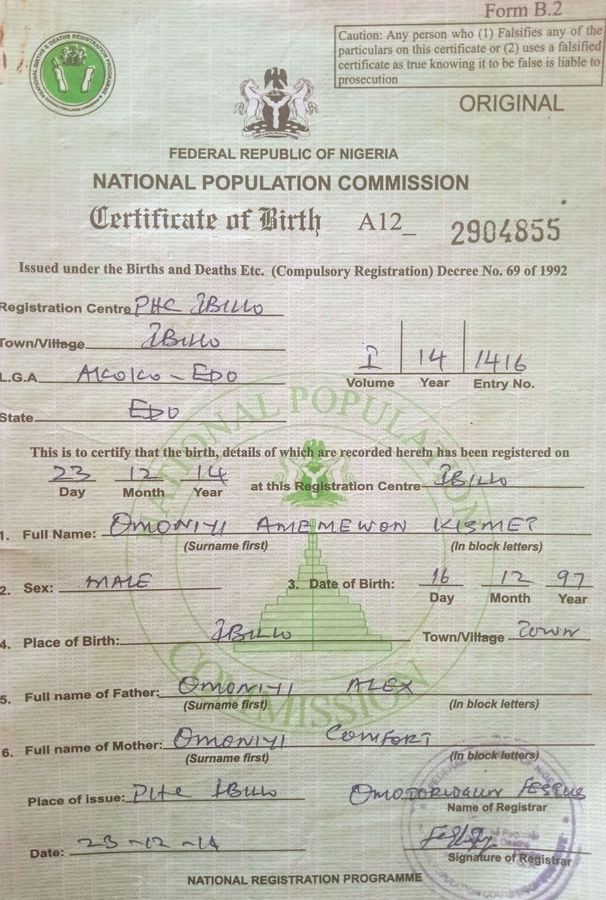 Form B.2
Caution: Any person who (1) Falsifies any of the
particulars on this certificate or (2) uses a falsified
certificate as true knowing it to be false is liable to
prosecution
ORIGINAL
FEDERAL REPUBLIC OF NIGERIA
NATIONAL POPULATION COMMISSION
Certificate of Birth A12_ 2904855
Issued under the Births and Deaths Etc. (Compulsory Registration) Decree No. 69 of 1992
Registration Centre PHC IBILLO
Town/Village IBILLO
L.G.A AKOKO - EDO
I 14 1416
Volume Year Entry No.
State EDO
NATIONAL POPULATION COMMISSION
This is to certify that the birth, details of which are recorded herein has been registered on
23 12 14 at this Registration Centre IBILLO
Day Month Year
1. Full Name: OMONIYI AMEMEWON KISMET
(Surname first) (In block letters)
2. Sex: MALE 3. Date of Birth: 16 12 97
Day Month Year
4. Place of Birth: IBILLO Town/Village TOWN
5. Full name of Father: OMONIYI ALEX
(Surname first) (In block letters)
6. Full name of Mother: OMONIYI COMFORT
(Surname first) (In block letters)
Place of issue: PHC IBILLO
Name of Registrar
Date: 23-12-14
Signature of Registrar
NATIONAL REGISTRATION PROGRAMME